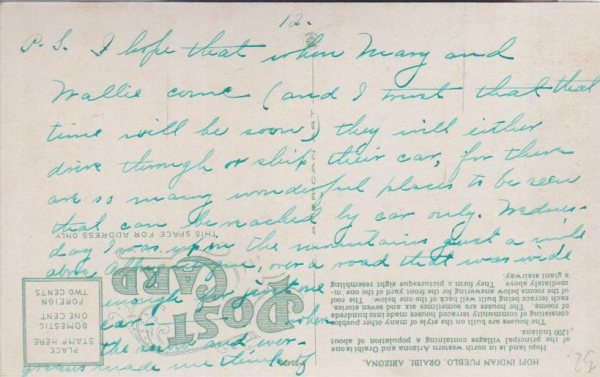 12.
P.S. I hope that when Mary and
Wallie come (and I trust that that
time will be soon) they will either
drive through or ship their car, for there
are so many wonderful places to be seen
that can be reached by car only. Wednes-
day I was up on the mountains just a mile
above, over a road that was wide
enough for just one
car - when
the snow and ever-
greens made me think of
52
POST CARD
THIS SPACE FOR ADDRESS ONLY
PLACE
STAMP HERE
DOMESTIC
ONE CENT
FOREIGN
TWO CENTS
HOPI INDIAN PUEBLO, ORAIBI, ARIZONA.
Hopi land is in north western Arizona and Oraibi is one
of the principal villages containing a population of about
1200 Indians.
The houses are built on the style of many other pueblos
consisting of community terraced houses made into hundreds
of rooms. The houses are sometimes six and seven stories
each terrace being built well back of the one below. The roof
of the rooms below answering for the front yard of the one im-
mediately above. They form a picturesque sight resembling
a giant stairway.